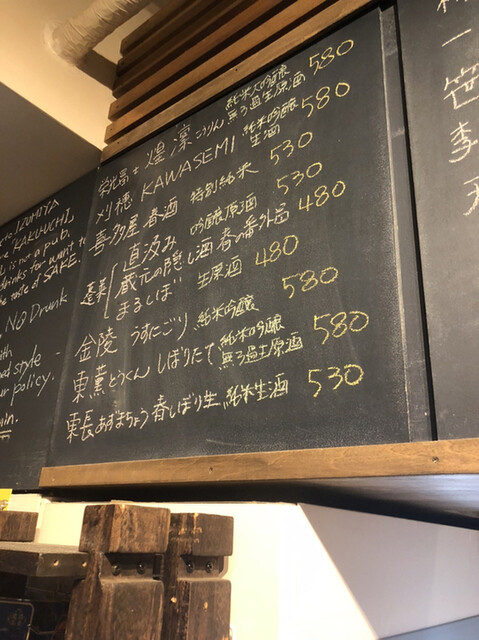 IZUMIYA
"KAKUUCHI"
is not a pub.
drinks for want to
the taste of SAKE.
No Drunk
with
style
policy.
栄光冨士 煌凛 こうりん 純米大吟醸 無ろ過生原酒 580
刈穂 KAWASEMI 純米吟醸 生酒 580
喜多屋 春酒 特別純米 530
蓬莱 直汲み 吟醸原酒 530
蔵元の隠し酒 春の番外品 480
まるしぼ 生原酒 480
金陵 うすにごり 純米吟醸 580
東薫 とうくん しぼりたて 純米吟醸 無ろ過生原酒 580
東長 あずまちょう 春しぼり生 純米生酒 530
一
笹
李